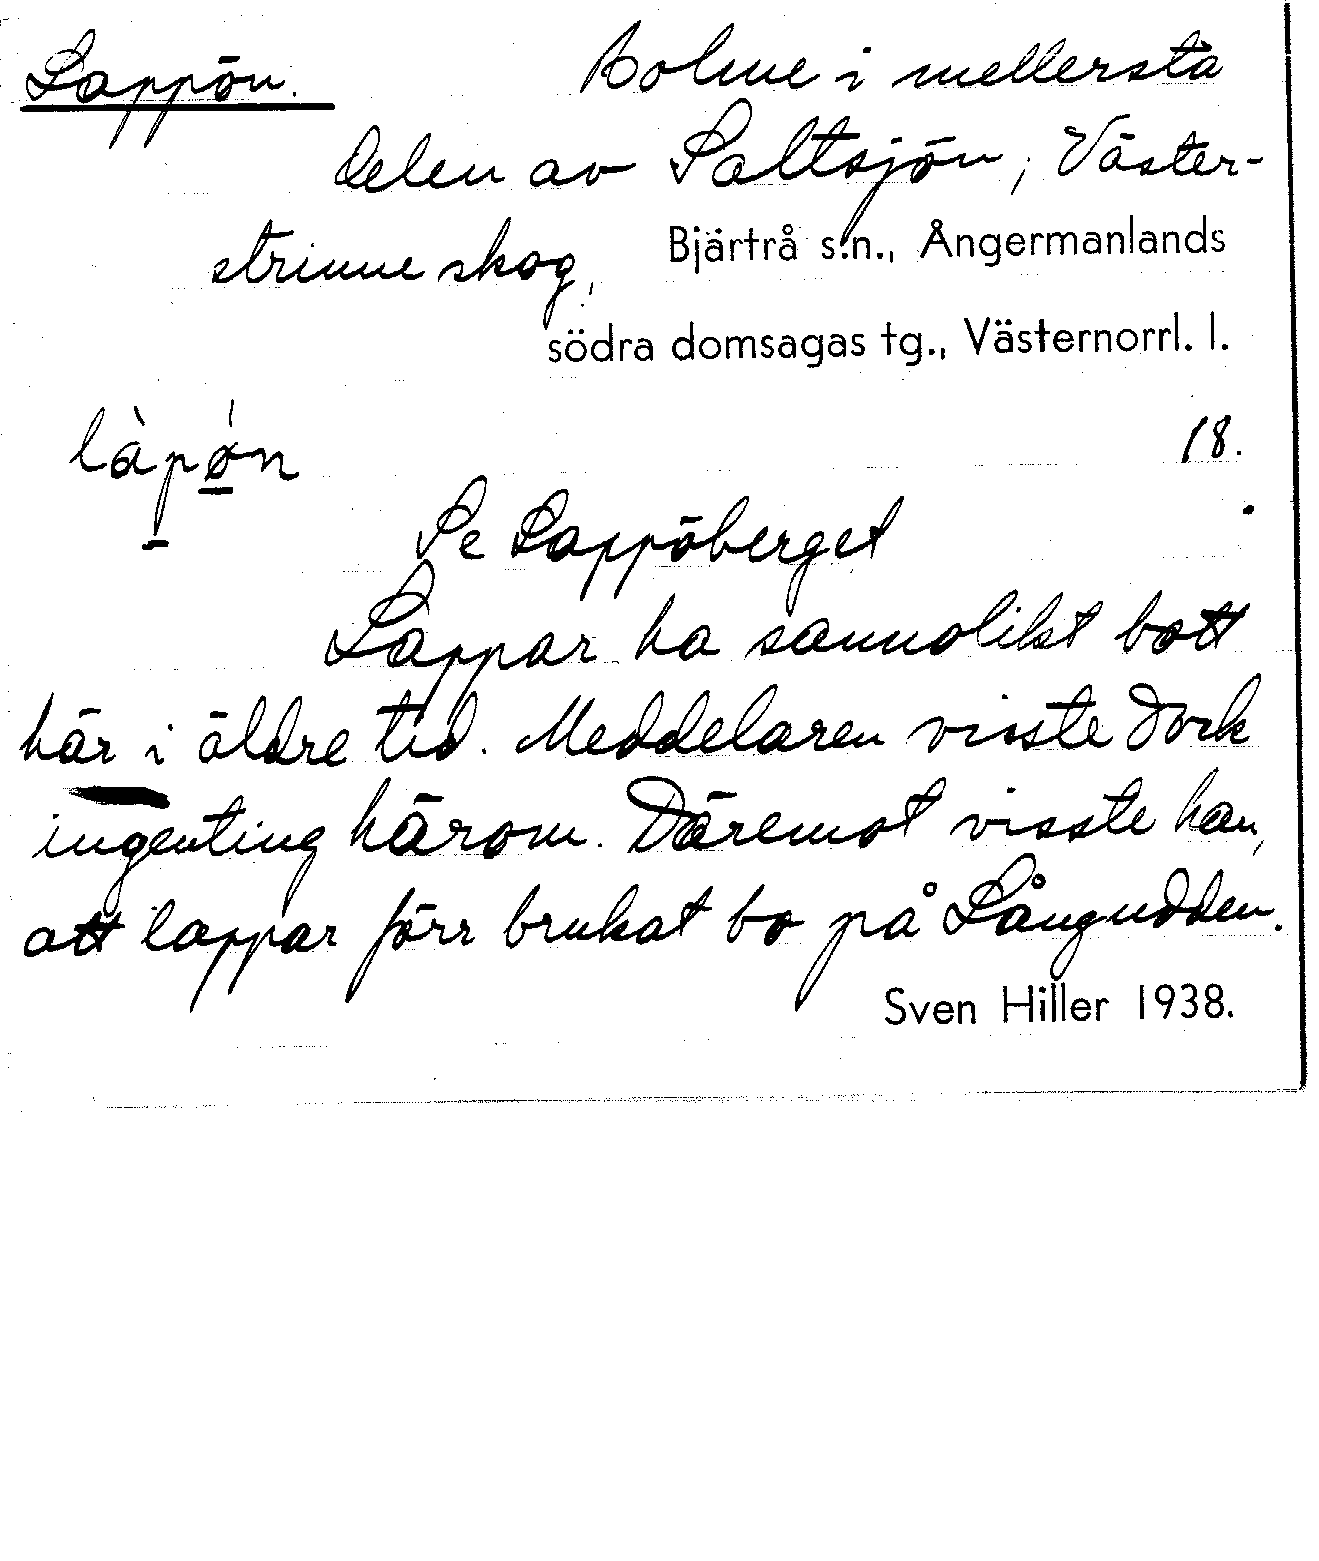 Lappön. Holme i mellersta
delen av Saltsjön, Väster-
strinne skog,
Bjärtrå s:n., Ångermanlands
södra domsagas tg., Västernorrl. l.
làpǿn 18.
Se Lappöberget
Lappar ha sannolikt bott
här i äldre tid. Meddelaren visste dock
ingenting härom. Däremot visste han,
att lappar förr brukat bo på Långudden.
Sven Hiller 1938.